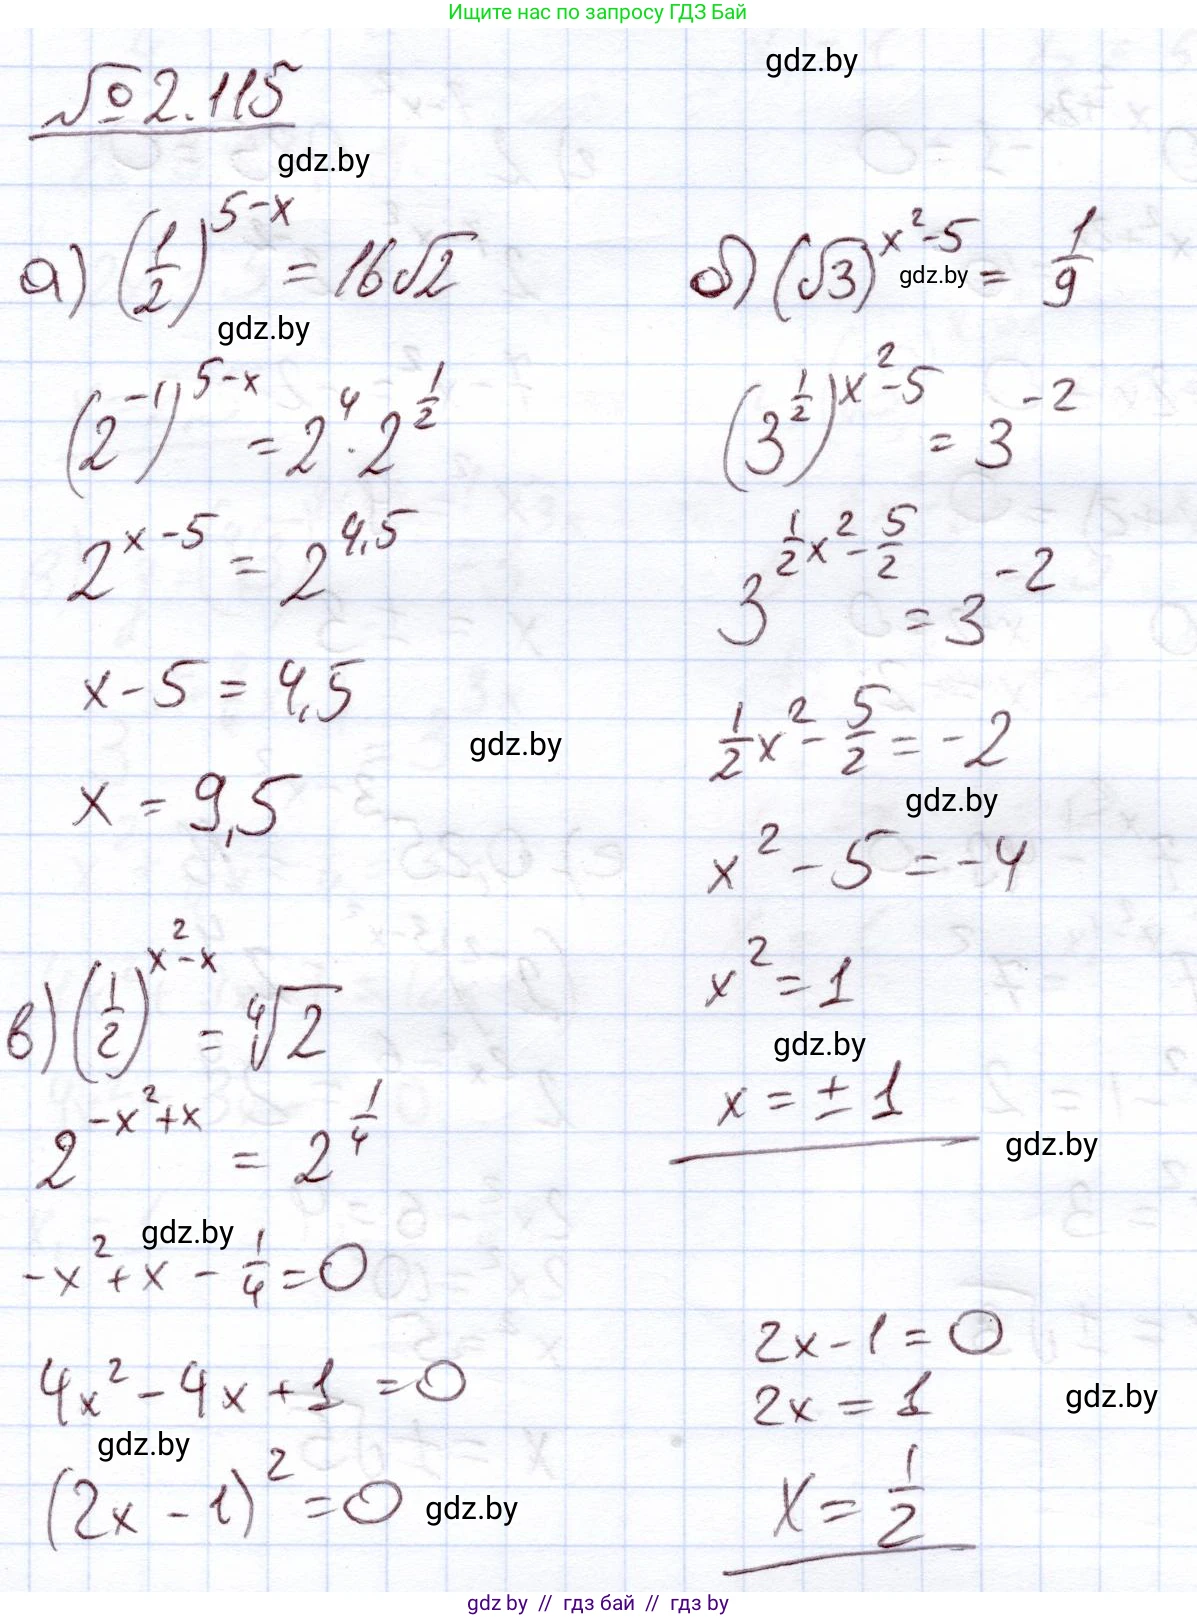 Ищите нас по запросу ГДЗ Бай
gdz.by
№ 2.115
gdz.by
а) (1/2)^(5-x) = 16√2
gdz.by
(2^(-1))^(5-x) = 2^4 · 2^(1/2)
2^(x-5) = 2^(4,5)
x - 5 = 4,5
gdz.by
x = 9,5
б) (√3)^(x²-5) = 1/9
gdz.by
(3^(1/2))^(x²-5) = 3^(-2)
3^(1/2 x² - 5/2) = 3^(-2)
1/2 x² - 5/2 = -2
gdz.by
x² - 5 = -4
x² = 1
gdz.by
x = ± 1
gdz.by
в) (1/2)^(x²-x) = ⁴√2
2^(-x²+x) = 2^(1/4)
gdz.by
-x² + x - 1/4 = 0
4x² - 4x + 1 = 0
gdz.by
(2x - 1)² = 0
gdz.by
2x - 1 = 0
2x = 1
gdz.by
x = 1/2
gdz.by // гдз бай // гдз by